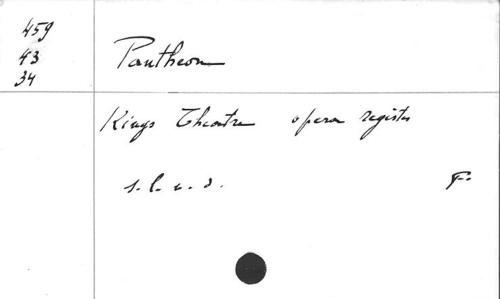 459
43
34
Pantheon
Kings Theatre opera register
s. l. e. d.
F.